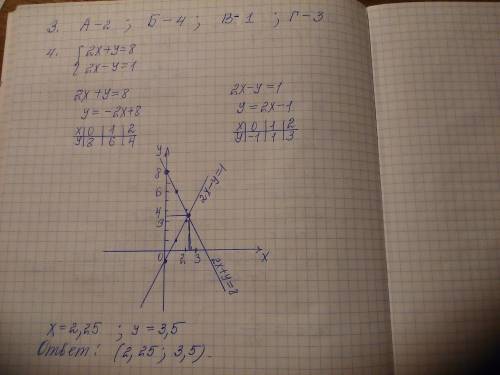 3. А-2 ; Б-4 ; В-1 ; Г-3
4. { 2x+y=8
2x-y=1
2x+y=8
y=-2x+8
x 0 1 2
y 8 6 4
2x-y=1
y=2x-1
x 0 1 2
y -1 1 3
y
8
6
4
0 2 3 x
2x-y=1
2x+y=8
x=2,25 ; y=3,5
Ответ: (2,25; 3,5).